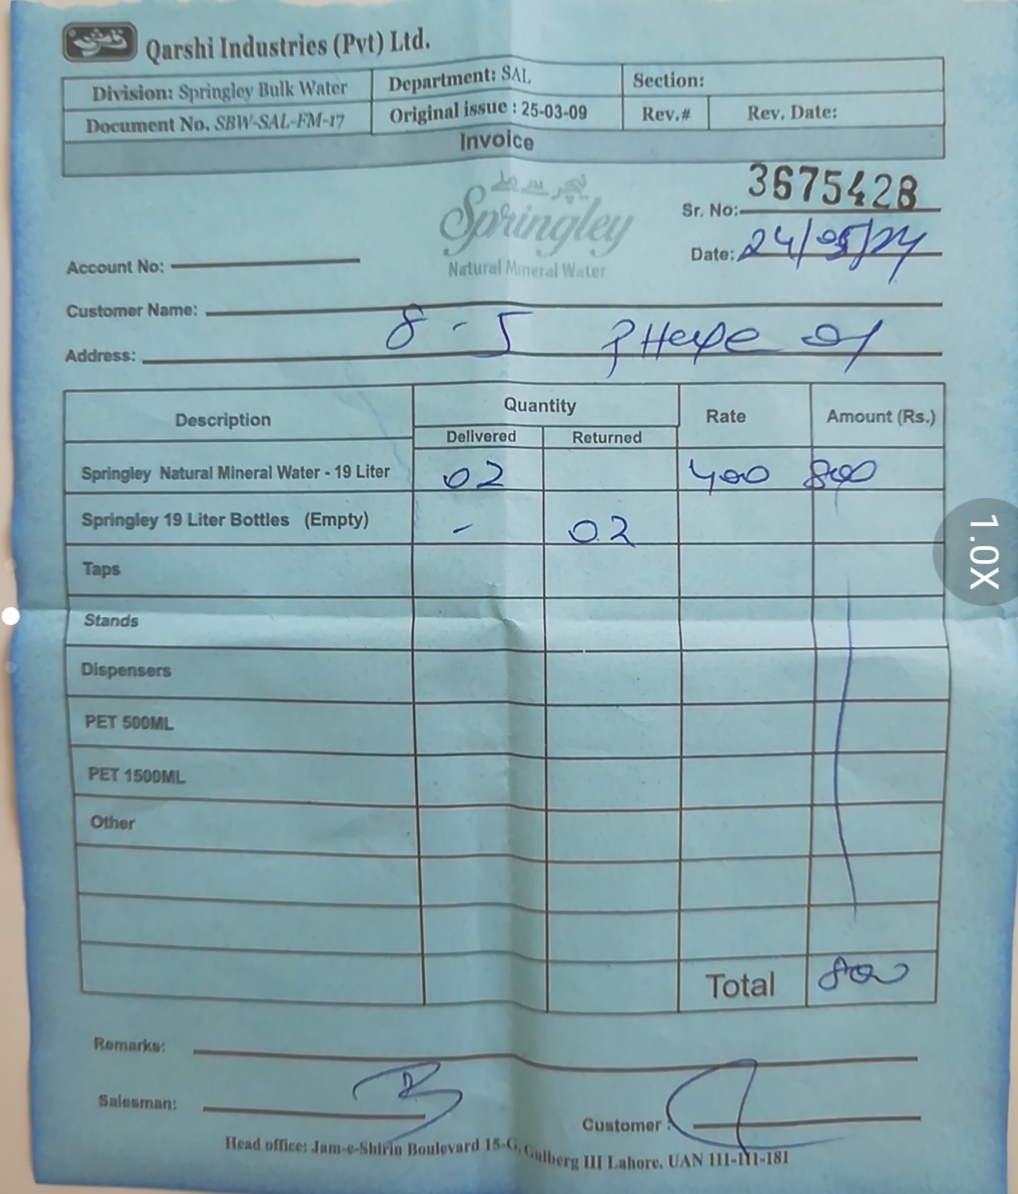 قرشی
Qarshi Industries (Pvt) Ltd.
Division: Springley Bulk Water Department: SAL Section:
Document No. SBW-SAL-FM-17 Original issue : 25-03-09 Rev.# Rev. Date:
Invoice
Springley
Natural Mineral Water
Sr. No: 3675428
Date: 24/05/24
Account No:
Customer Name:
Address: 8 - 5
Description Quantity Rate Amount (Rs.)
Delivered Returned
Springley Natural Mineral Water - 19 Liter 02 400 800
Springley 19 Liter Bottles (Empty) - 02
Taps
Stands
Dispensers
PET 500ML
PET 1500ML
Other
Total 800
Remarks:
Salesman:
Customer :
Head office: Jam-e-Shirin Boulevard 15-G, Gulberg III Lahore. UAN 111-111-181
1.0X